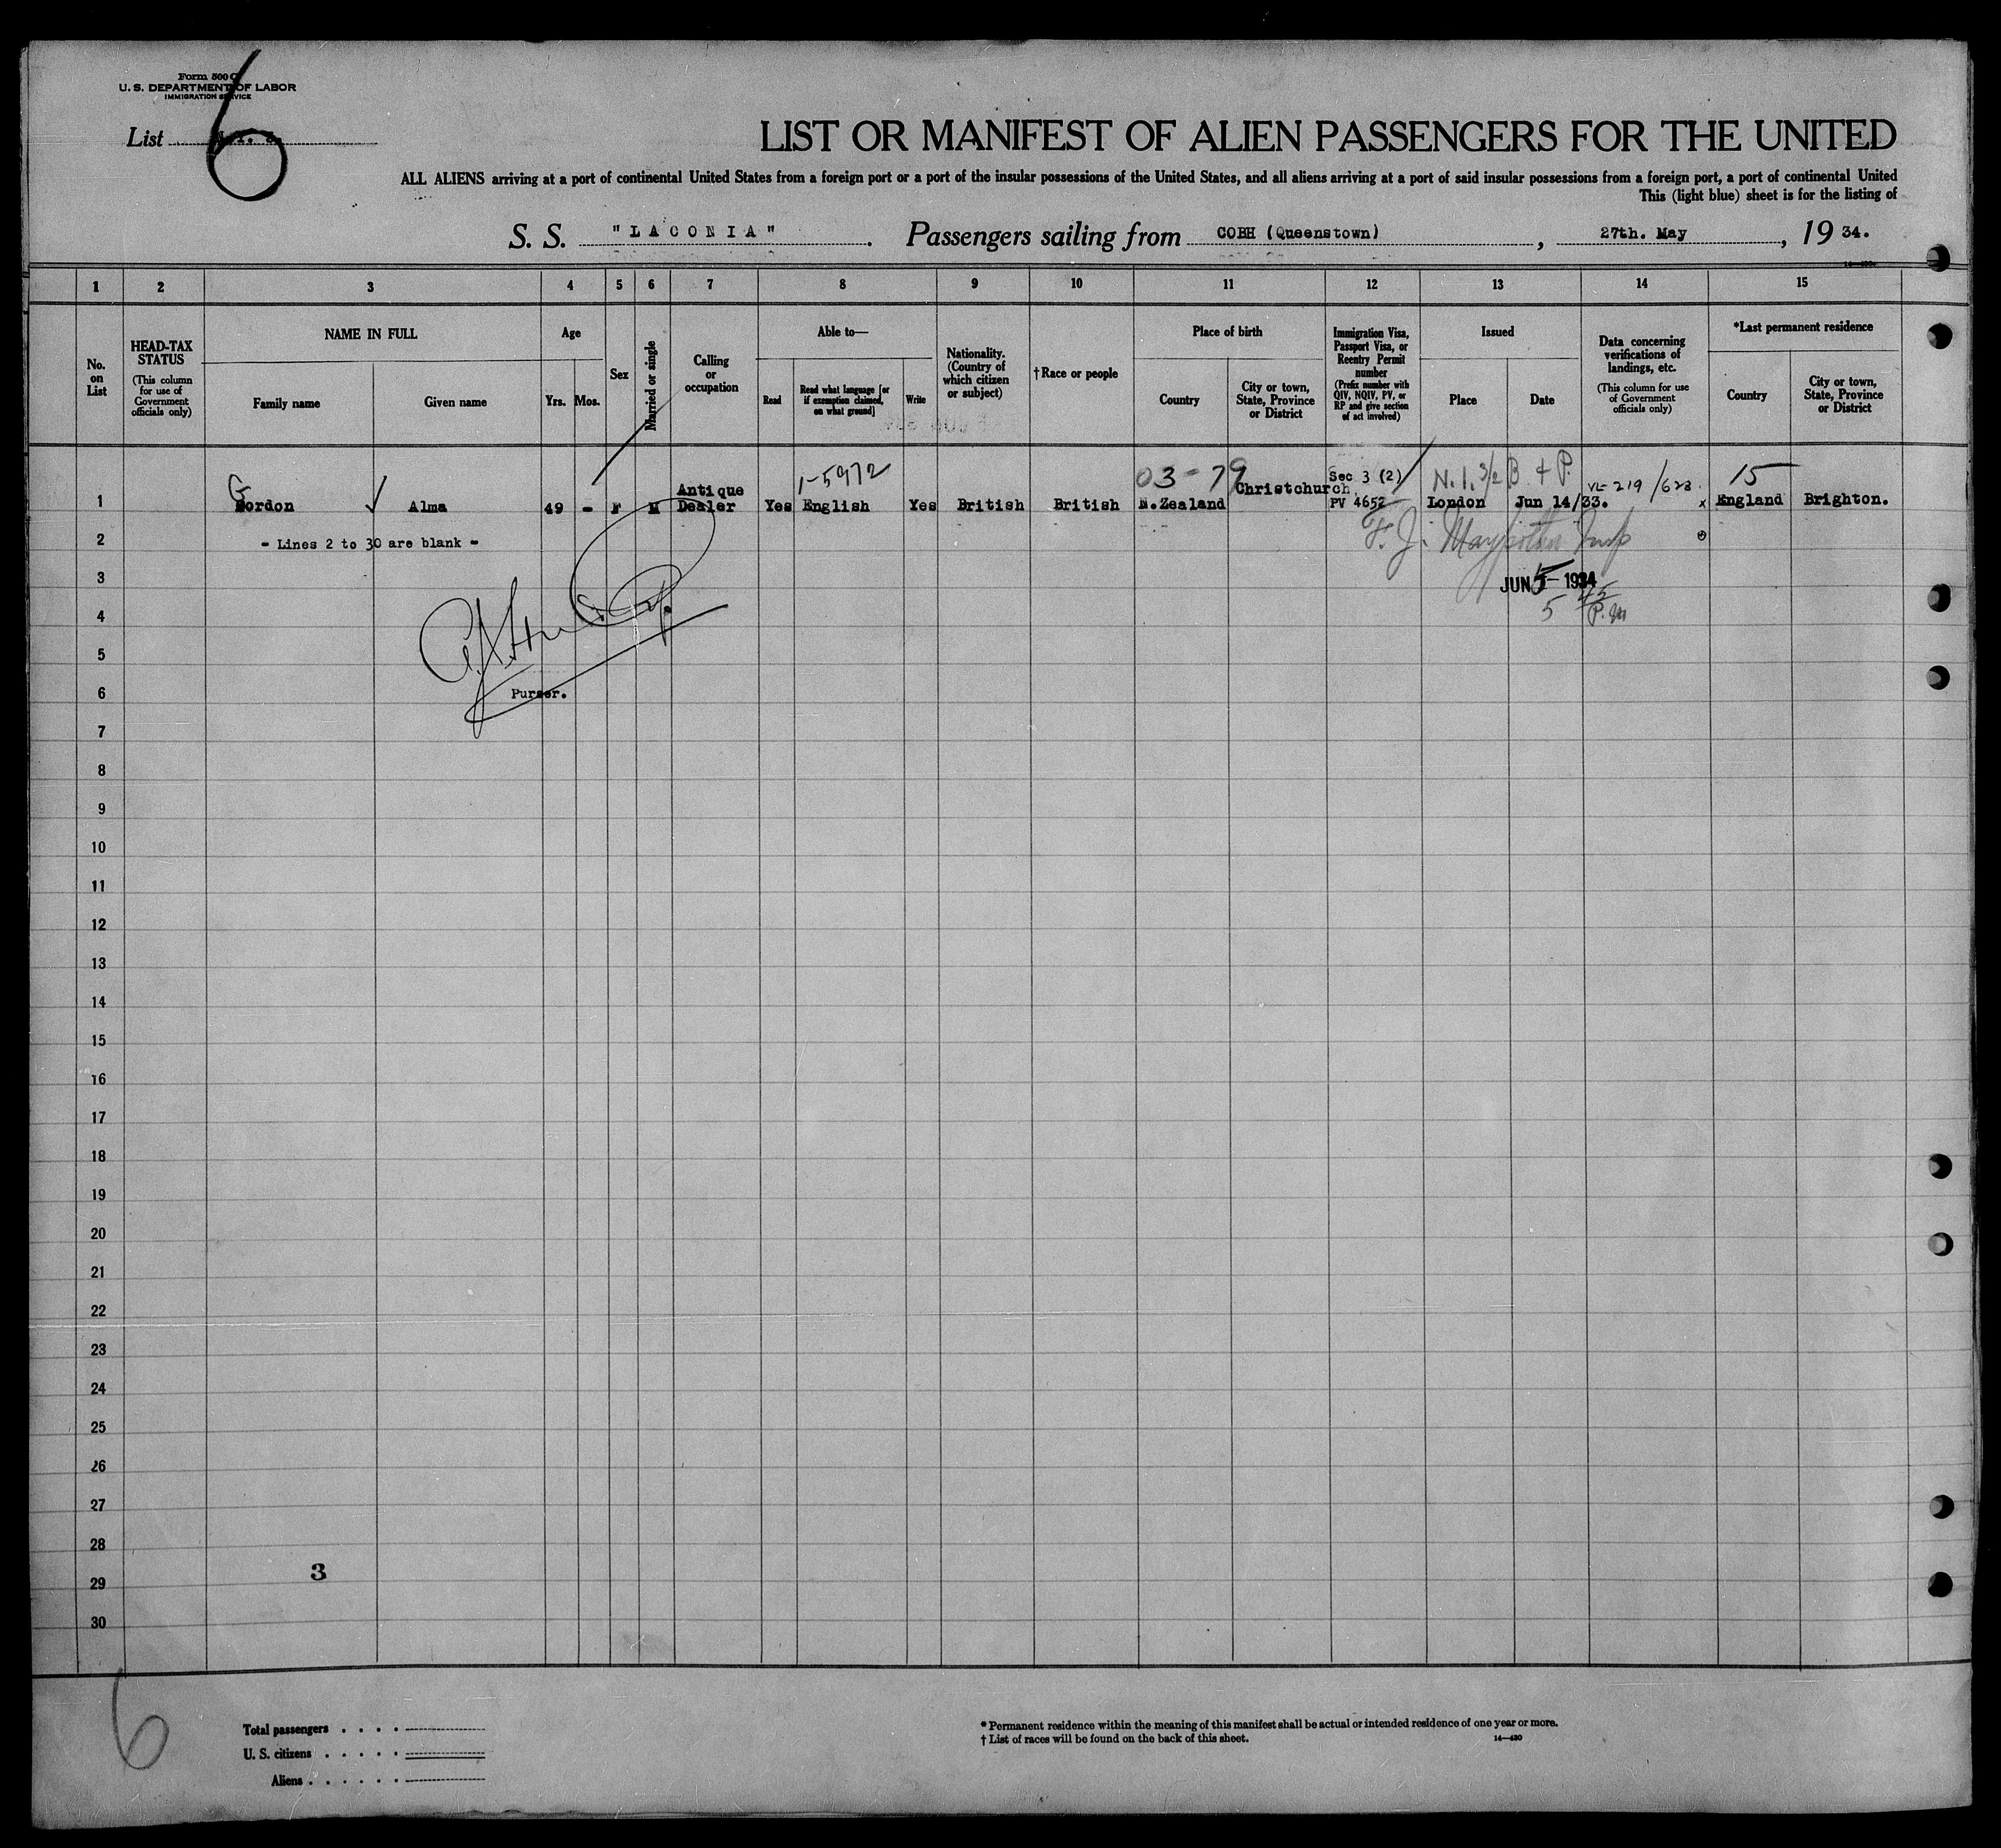 Form 500 C
U. S. DEPARTMENT OF LABOR
IMMIGRATION SERVICE
List
6
LIST OR MANIFEST OF ALIEN PASSENGERS FOR THE UNITED
ALL ALIENS arriving at a port of continental United States from a foreign port or a port of the insular possessions of the United States, and all aliens arriving at a port of said insular possessions from a foreign port, a port of continental United
This (light blue) sheet is for the listing of
S. S. "LACONIA". Passengers sailing from COBH (Queenstown), 27th. May, 19 34.
1 2 3 4 5 6 7 8 9 10 11 12 13 14 15
No. on List
HEAD-TAX STATUS
(This column for use of Government officials only)
NAME IN FULL
Family name
Given name
Age
Yrs.
Mos.
Sex
Married or single
Calling or occupation
Able to—
Read
Read what language [or if exemption claimed, on what ground]
Write
Nationality. (Country of which citizen or subject)
†Race or people
Place of birth
Country
City or town, State, Province or District
Immigration Visa, Passport Visa, or Reentry Permit number
(Prefix number with QIV, NQIV, PV, or RP and give section of act involved)
Issued
Place
Date
Data concerning verifications of landings, etc.
(This column for use of Government officials only)
*Last permanent residence
Country
City or town, State, Province or District
1-5972 03-79 Sec 3 (2) N.I. 3/2 B & P. VL-219/623. 15
1 Gordon Alma 49 - F M Antique Dealer Yes English Yes British British N.Zealand Christchurch PV 4652 London Jun 14/33. x England Brighton.
2 - Lines 2 to 30 are blank -
F. J.
3
JUN 5- 1934
4
5 45 P.M
5
6 Purser.
7
8
9
10
11
12
13
14
15
16
17
18
19
20
21
22
23
24
25
26
27
28
3
29
30
6
Total passengers . . . .
U. S. citizens . . . . .
Aliens . . . . . .
* Permanent residence within the meaning of this manifest shall be actual or intended residence of one year or more.
† List of races will be found on the back of this sheet.
14—430